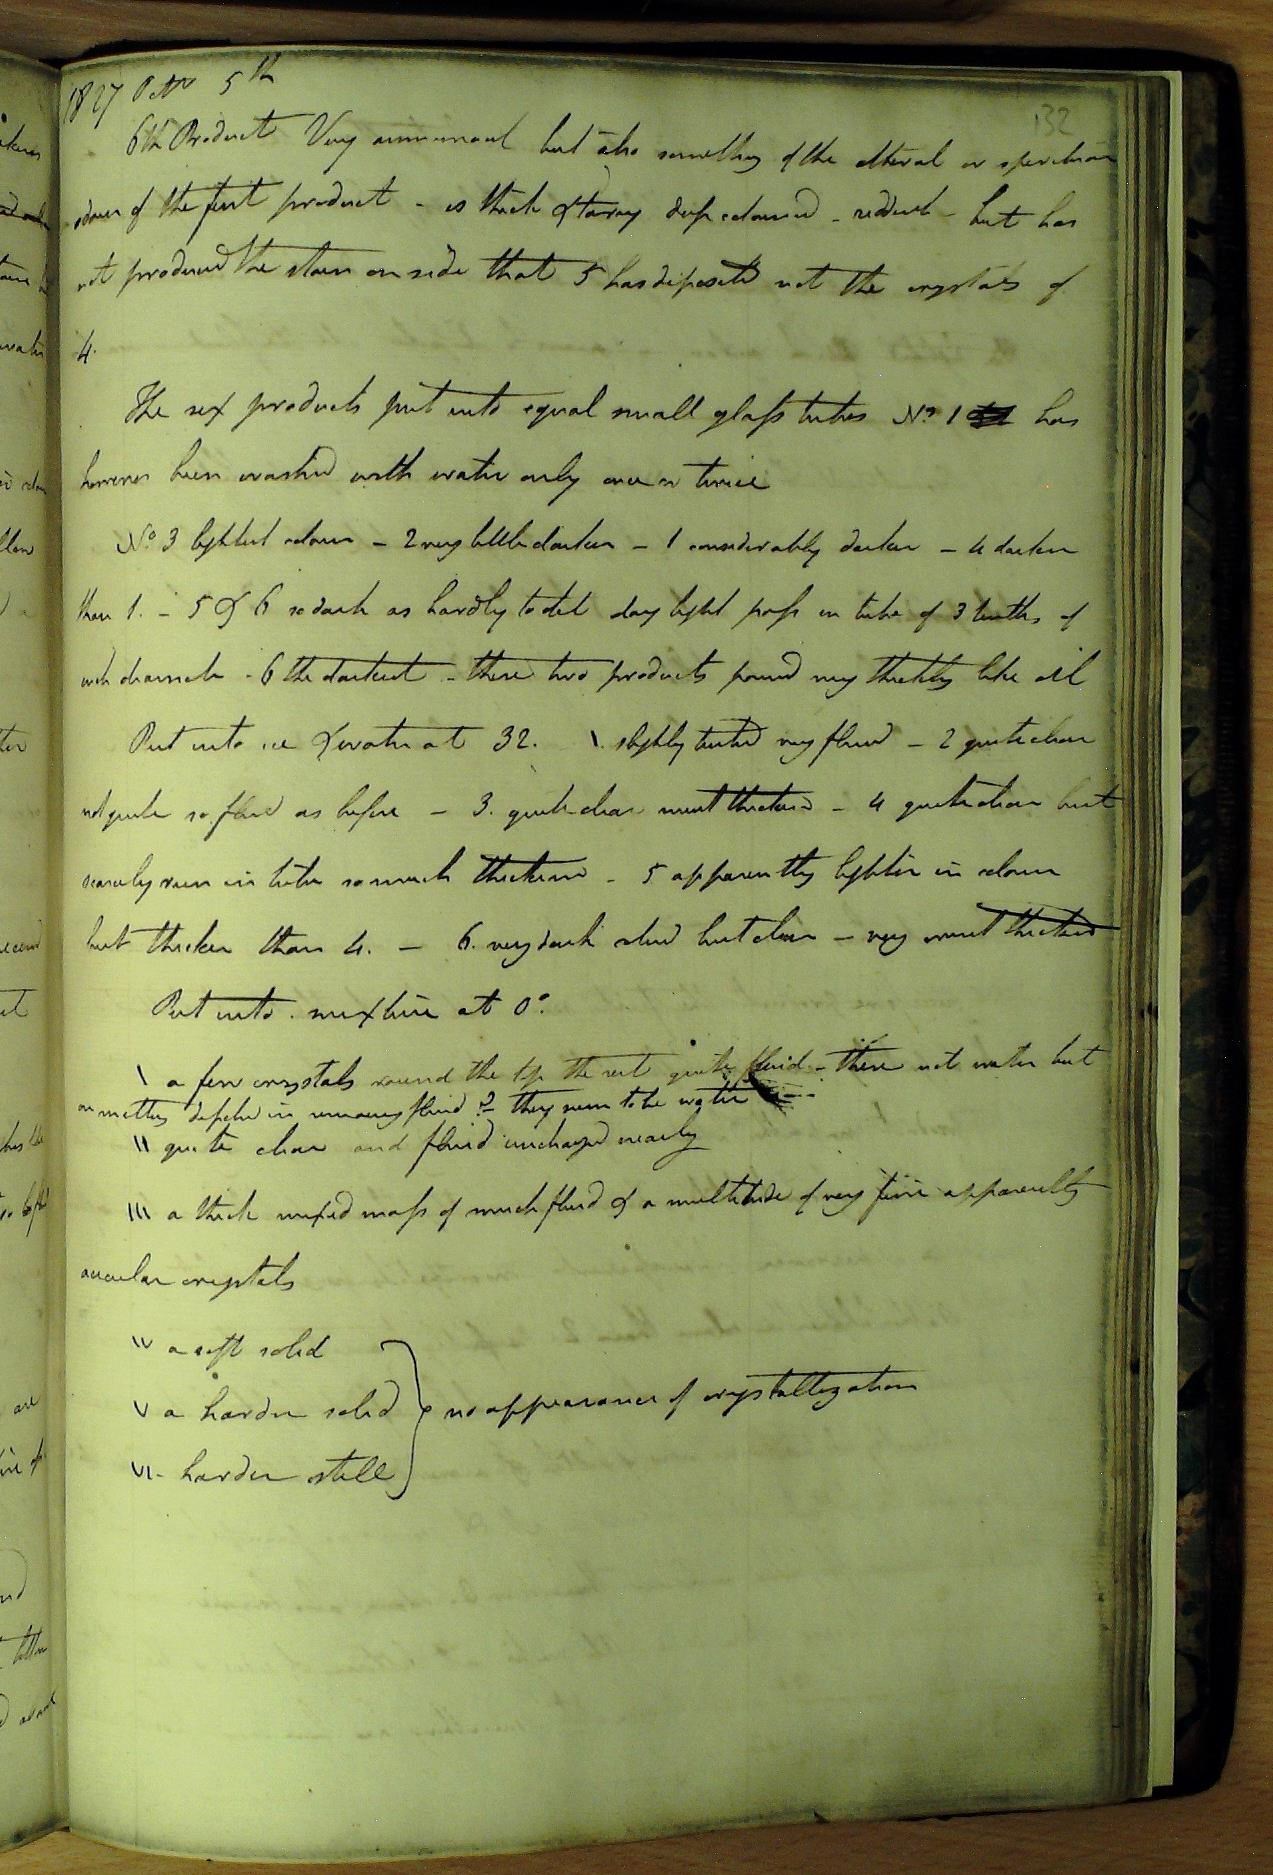 1827 Octr 5th
132
6th Product Very ammoniacal but also something of the etherial or
odour of the first product - is thick & tarry deep coloured - reddish - but has
not produced the stain on side that 5 has deposited not the crystals of
4.
The six products put into equal small glass tubes No. 1 has
however been washed with water only once or twice
No 3 lightest colour - 2 very little darker - 1 considerably darker - 4 darker
than 1. - 5 & 6 so dark as hardly to let day light pass in tube of 3 tenths of
inch diameter - 6 the darkest - these two products poured very thickly like oil
Put into ice & water at 32. 1. slightly turbid very fluid - 2 quite clear
not quite so fluid as before - 3. quite clear much thickened - 4 quite clear but
scarcely run in tube so much thickened - 5 apparently lighter in colour
but thicker than 4. - 6. very dark red but clear - very much thickened
Put into mixture at 0°.
I a few crystals round the top the rest quite fluid - these not water but
on melting in fluid ? they seem to be water
II quite clear and fluid unchanged nearly
III a thick mixed mass of much fluid & a multitude of very fine apparently
acicular crystals
IV a soft solid
V a harder solid no appearance of crystallization
VI - harder still